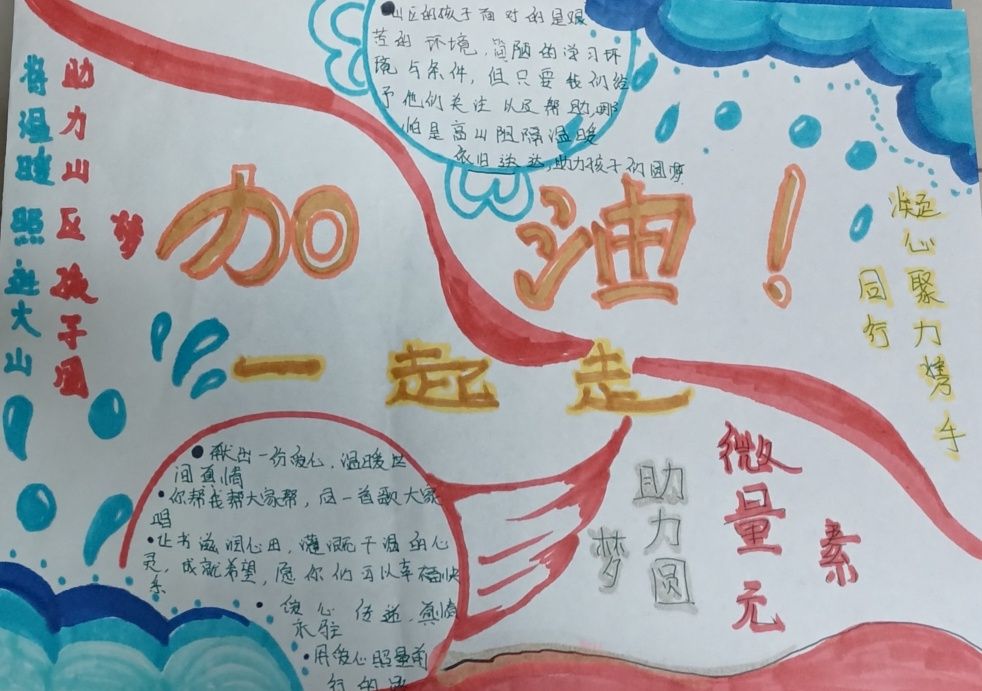 山区的孩子面对的是艰
苦的环境，简陋的学习环
境与条件，但只要我们给
予他们关注以及帮助，哪
怕是高山阻隔温暖
依旧送达，助力孩子们圆梦
将温暖照进大山
助力山区孩子圆
梦
加油！
一起走
凝心聚力携手
同行
献出一份爱心，温暖
间真情
你帮我帮大家帮，同一首歌大家
唱
让书滋润心田，灌溉干涸的心
灵，成就希望，愿你们
传递，真情
永驻
用爱心照亮前
行的
微量元
素
助力圆
梦